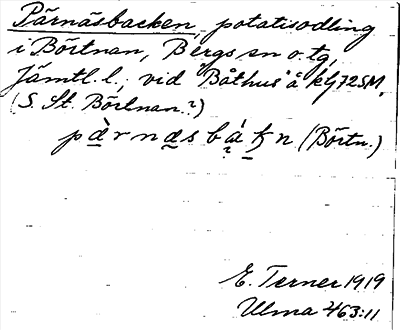 Pärnäsbacken, potatisodling
i Börtnan, Bergs sn o. tg,
Jämtl. l., vid "Båthus" å kG 72SM,
(S. St. Börtnan?)
pàrnasbákn (Börtn.)
E. Terner 1919
Ulma 463:11